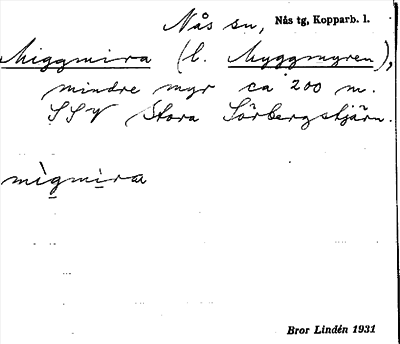 Nås sn, Nås tg, Kopparb. l.
Miggmira (l. Myggmyren),
mindre myr ca 200 m.
SSV Stora Sörbergstjärn.
mìgmira
Bror Lindén 1931